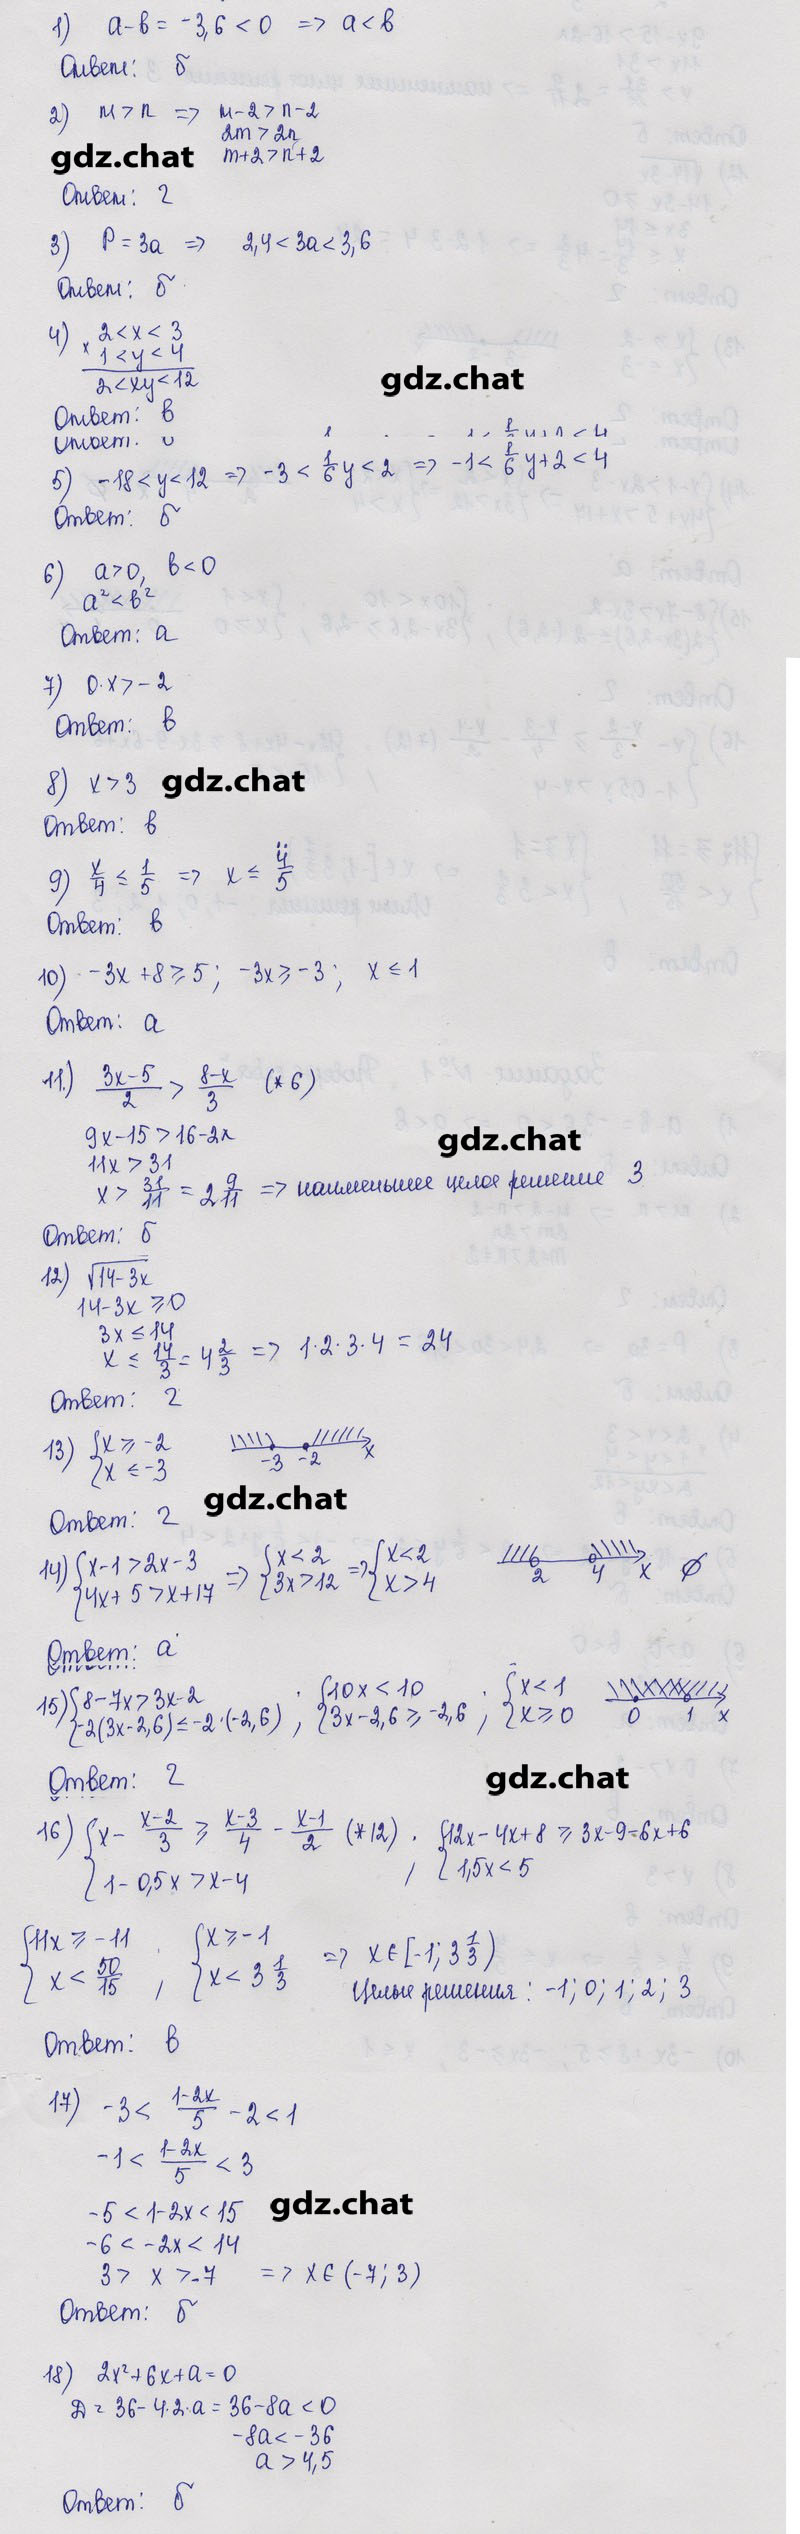 1) a-b = -3,6 < 0 => a < b
Ответ: б
2) m > n => m-2 > n-2
2m > 2n
gdz.chat
m+2 > n+2
Ответ: г
3) P = 3a => 2,4 < 3a < 3,6
Ответ: б
4) 2 < x < 3
x 1 < y < 4
2 < xy < 12
gdz.chat
Ответ: в
5) -18 < y < 12 => -3 < 1/6 y < 2 => -1 < 1/6 y + 2 < 4
Ответ: б
6) a > 0, b < 0
a² < b²
Ответ: а
7) 0·x > -2
Ответ: в
8) x > 3
gdz.chat
Ответ: в
9) x/4 ≤ 1/5 => x ≤ 4/5
Ответ: в
10) -3x + 8 ≥ 5; -3x ≥ -3; x ≤ 1
Ответ: а
11.) (3x-5)/2 > (8-x)/3 (*6)
9x-15 > 16-2x
gdz.chat
11x > 31
x > 31/11 = 2 9/11 => наименьшее целое решение 3
Ответ: б
12) √(14-3x)
14-3x ≥ 0
3x ≤ 14
x ≤ 14/3 = 4 2/3 => 1·2·3·4 = 24
Ответ: г
13) {x ≥ -2
{x ≤ -3
-3 -2 x
gdz.chat
Ответ: г
14) {x-1 > 2x-3 => {x < 2 => {x < 2
{4x+5 > x+17 {3x > 12 {x > 4
2 4 x ∅
Ответ: а
15) {8-7x > 3x-2 ; {10x < 10 ; {x < 1
{-2(3x-2,6) ≤ -2·(-2,6) {3x-2,6 ≥ -2,6 {x ≥ 0
0 1 x
Ответ: г
gdz.chat
16) {x - (x-2)/3 ≥ (x-3)/4 - (x-1)/2 (*12) , {12x-4x+8 ≥ 3x-9-6x+6
{1-0,5x > x-4 {1,5x < 5
{11x ≥ -11 , {x ≥ -1 => x ∈ [-1; 3 1/3)
{x < 50/15 {x < 3 1/3
Целые решения: -1; 0; 1; 2; 3
Ответ: в
17) -3 < (1-2x)/5 - 2 < 1
-1 < (1-2x)/5 < 3
gdz.chat
-5 < 1-2x < 15
-6 < -2x < 14
3 > x > -7 => x ∈ (-7; 3)
Ответ: б
18) 2x²+6x+a = 0
D = 36-4·2·a = 36-8a < 0
-8a < -36
a > 4,5
Ответ: б